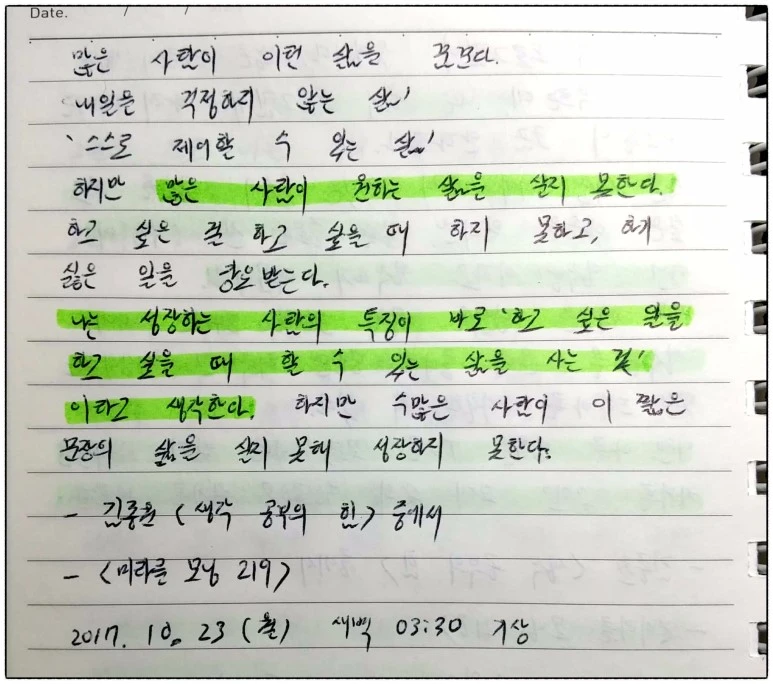 Date. / /
많은 사람이 이런 삶을 꿈꾼다.
내일을 걱정하지 않는 삶!
'스스로 제어할 수 있는 삶!
하지만 많은 사람이 원하는 삶을 살지 못한다.
하고 싶은 걸 하고 싶을 때 하지 못하고, 하기
싫은 일을 강요받는다.
나는 성장하는 사람의 특징이 바로 '하고 싶은 일을
하고 싶을 때 할 수 있는 삶을 사는 것'
이라고 생각한다. 하지만 수많은 사람이 이 짧은
문장의 삶을 살지 못해 성장하지 못한다.
- 김종원 <생각 공부의 힘> 중에서
- <미라클 모닝 219>
2017. 10. 23 (월) 새벽 03:30 기상